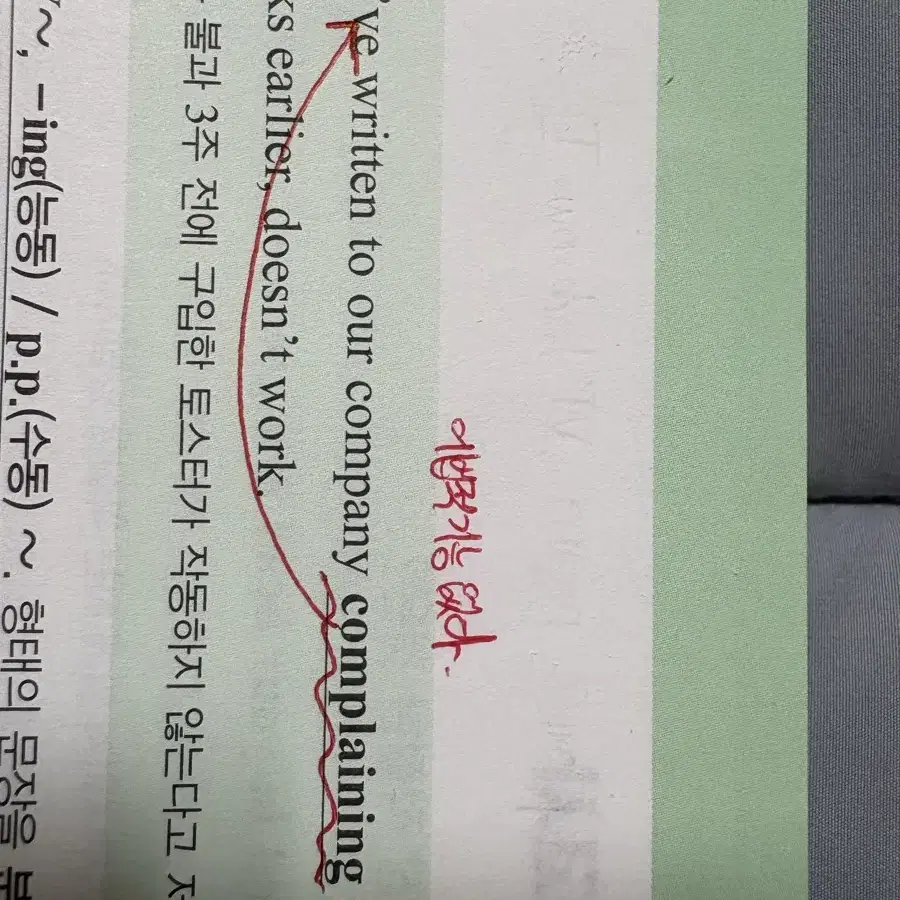 어법적기능 없다.
've written to our company complaining
ks earlier, doesn't work.
불과 3주 전에 구입한 토스터가 작동하지 않는다고
~, -ing(능동) / p.p.(수동) ~. 형태의 문장을